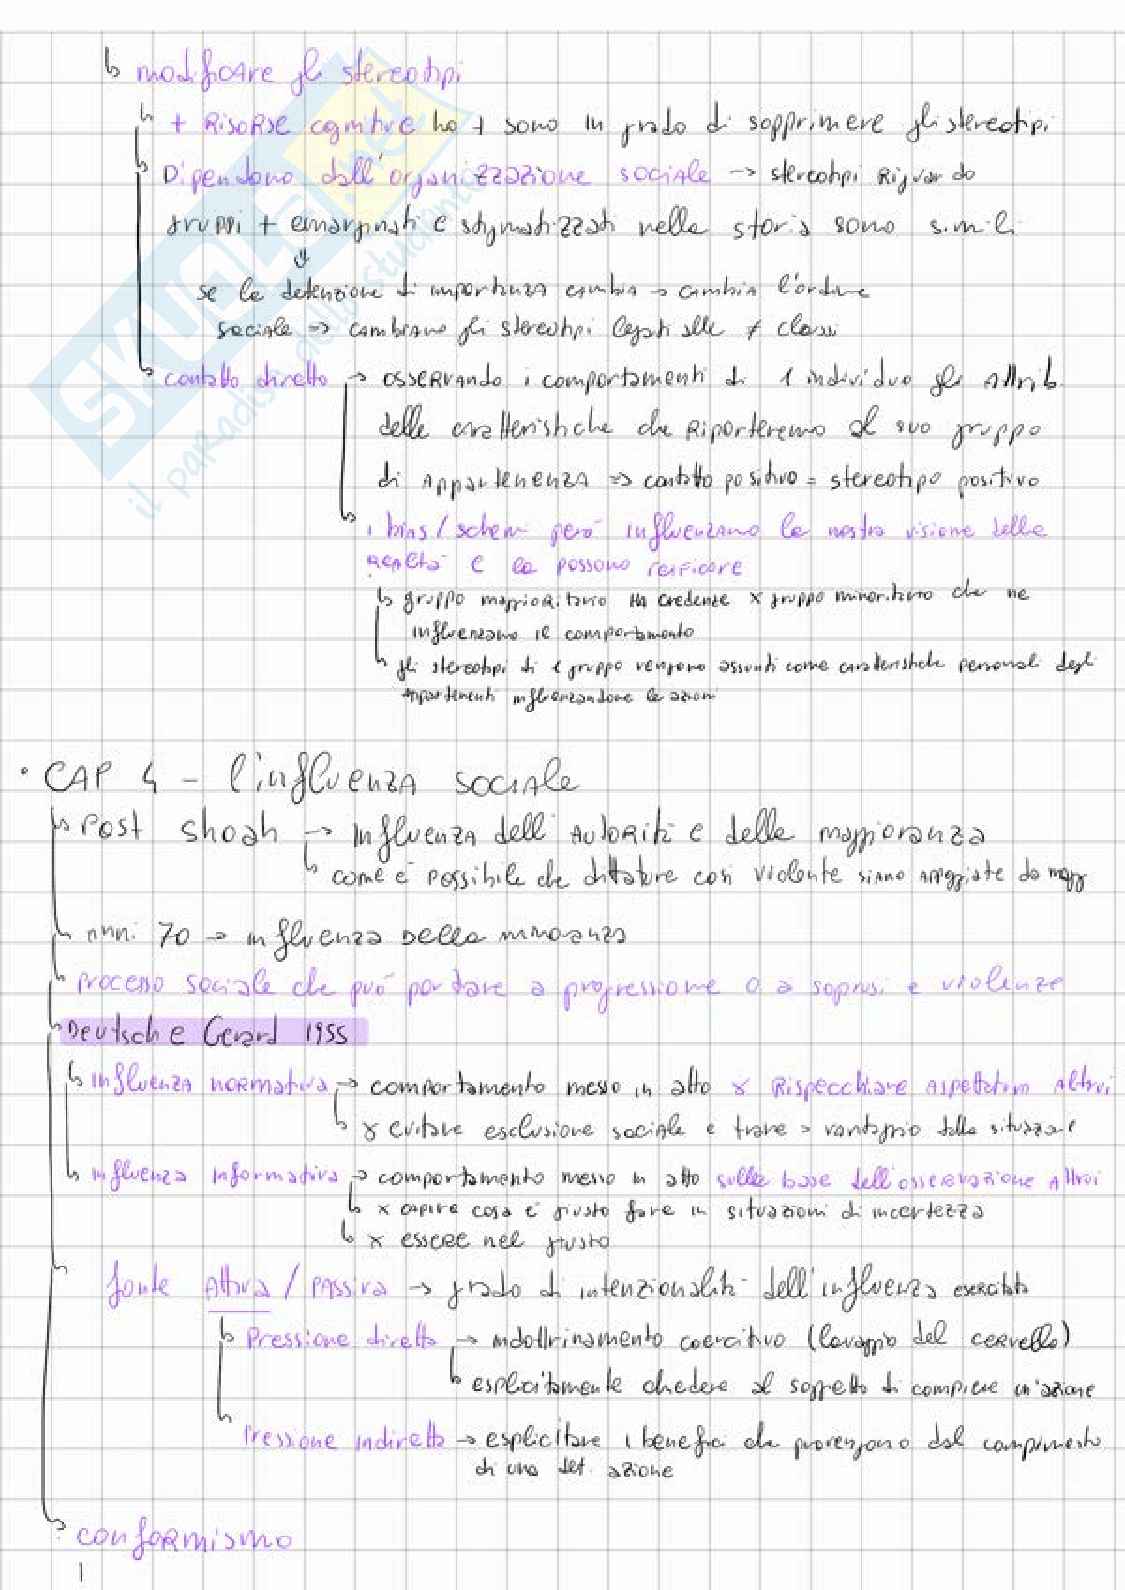 ↳ modificare gli stereotipi
↳ + Risorse cognitive ho + sono in grado di sopprimere gli stereotipi
↳ Dipendono dall'organizzazione sociale → stereotipi Riguardo
gruppi + emarginati e stigmatizzati nella storia sono simili
⇓
se la detenzione di importanza cambia → cambia l'ordine
sociale ⇒ cambiano gli stereotipi legati alle ≠ classi
↳ contatto diretto → osservando i comportamenti di 1 individuo gli Attrib.
delle caratteristiche che Riporteremo al suo gruppo
di Appartenenza ⇒ contatto positivo = stereotipo positivo
↳ i bias/schemi però influenzano la nostra visione della
Realtà e la possono reificare
↳ gruppo maggioritario HA credenze x gruppo minoritario che ne
influenzano il comportamento
↳ gli stereotipi di 1 gruppo vengono assunti come caratteristiche personali degli
Appartenenti influenzandone le azioni
• CAP 4 - l'influenza sociale
↳ Post shoah → influenza dell'Autorità e della maggioranza
↳ come è possibile che dittature così violente siano appoggiate da magg
↳ anni 70 → influenza della minoranza
↳ processo sociale che può portare a progressione o a soprusi e violenze
↳ Deutsch e Gerard 1955
↳ influenza normativa → comportamento messo in atto x Rispecchiare Aspettative Altrui
↳ x evitare esclusione sociale e trarre vantaggio dalla situazione
↳ influenza informativa → comportamento messo in atto sulla base dell'osservazione Altrui
↳ x capire cosa è giusto fare in situazioni di incertezza
↳ x essere nel giusto
↳ fonte Attiva / Passiva → grado di intenzionalità dell'influenza esercitata
↳ Pressione diretta → indottrinamento coercitivo (lavaggio del cervello)
↳ esplicitamente chiedere al soggetto di compiere un'azione
↳ Pressione indiretta → esplicitare i benefici che provengono dal compimento
di una det. azione
↳ conformismo
SKUOLA.net
il paradiso dello studente